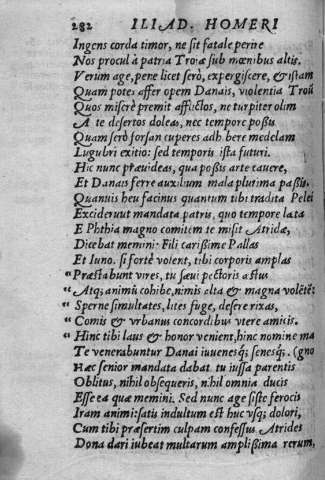 282 ILIAD. HOMERI
Ingens corda timor, ne sit fatale perire
Nos procul à patria Troiæ sub mœnibus altis.
Verum age, pene licet serò, expergiscere, & istam
Quam potes affer opem Danais, violentia Troû
Quos miserè premit afflictos, ne turpiter olim
A te desertos doleas, nec tempore possis
Quam serò forsan cuperes adhibere medelam
Lugubri exitio: sed temporis ista futuri.
Hic nunc præuideas, qua possis arte cauere,
Et Danais ferre auxilium mala plurima passis.
Quamuis heu facinus quantum tibi tradita Pelei
Exciderunt mandata patris, quo tempore lata
E Phthia magno comitem te misit Atridæ,
Dicebat memini: Fili carissime Pallas
Et Iuno. si fortè volent, tibi corporis amplas
" Præstabunt vires, tu sæui pectoris æstus
" Atq; animũ cohibe, nimis alta & magna volẽtẽ:
" Sperne simultates, lites fuge, desere rixas,
" Comis & vrbanus concordibus vtere amicis.
" Hinc tibi laus & honor venient, hinc nomine ma
Te venerabuntur Danai iuuenesq; senesq;. (gno
Hæc senior mandata dabat. tu iussa parentis
Oblitus, nihil obsequeris, nihil omnia ducis
Esse ea quæ memini. Sed nunc age siste ferocis
Iram animi: satis indultum est huc vsq; dolori,
Cum tibi præsertim culpam confessus Atrides
Dona dari iubeat multarum amplissima rerum,